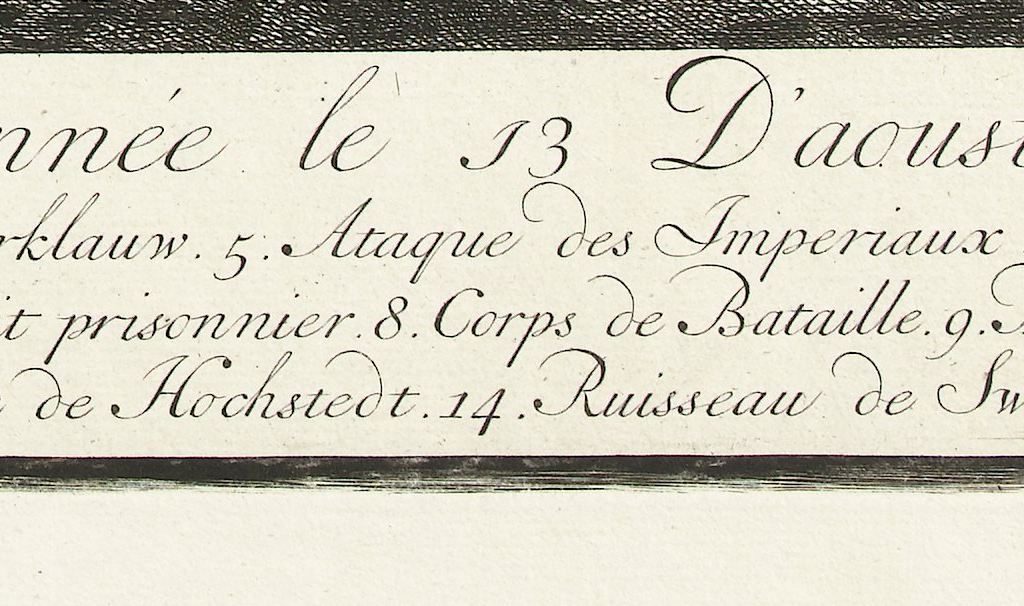 nnée le 13 D'aoust
rklauw. 5. Ataque des Imperiaux
it prisonnier. 8. Corps de Bataille. 9.
de Hochstedt. 14. Ruisseau de Sw